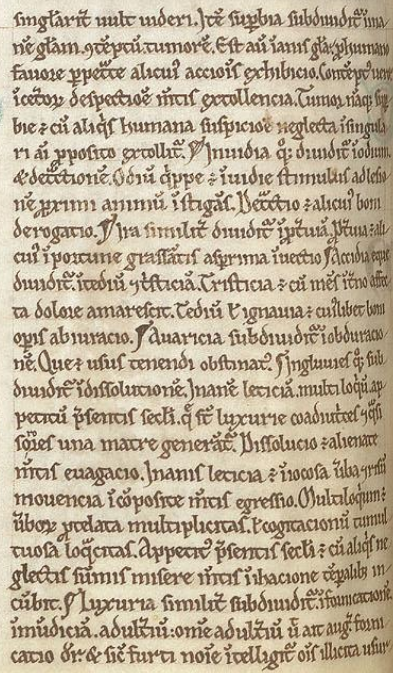 singlarit̃ uult uideri. Itẽ supbia subdiuidit̃ ĩ ina
nẽ glam. ⁊cẽptũ. tumorẽ. Est aũ ianis gla. p humano
fauore ppetrate alicuiꝰ accioĩs exhibicio. Contẽptꝰ uero
ĩcetor̃ despectioẽ mẽtis extollencia. Tumor nãq; sup
bie ÷ cũ aliq̇s humana suspicioẽ neglecta ĩsingula
ri aũ pposito extollit̃. Inuidia q̊; diuidit̃ ĩodium.
& detractionẽ. Odiũ q̇ppe ÷ ĩuidie stimulus ad lesio
nẽ pximi animũ ĩstigãs. Detractio ÷ alicuiꝰ boni
derogatio. Ira similit̃ diuidit̃ ĩptuiã. Ptuia ÷ ali
cuiꝰ ĩportune grassãtis asprima ĩuectio. Accidia eque
diuidit̃. ĩtediũ ⁊t̃sticiã. Tristicia ÷ cũ mẽs ĩtno affec
ta dolore amarescit. Tediũ ĩ ignauia ÷ cuiꝰlibet boni
opis abiuracio. Auaricia subdiuidit̃ ĩobduracio
nẽ. Que ÷ usus tenendi obstinatꝰ. Ingluuies q̊; sub
diuidit̃ ĩdissolutionẽ. Inanẽ leticiã. multiloq̇ũ. ap
petitũ p̃sentis secli. q̃ st̃ luxurie coadiut̃ces ⁊ q̃si
sorões una matre generãt̃. Dissolucio ÷ alienate
mẽtis euagacio. Inanis leticia ÷ ĩiocosa ũba ⁊ risũ
mouencia ĩcõposite mẽtis egressio. Multiloq̇um ÷
ũbor̃ ptelata multiplicitas. ⁊ cogitacionũ tumul
tuosa loq̃citas. Appetitꝰ p̃sentis secli ÷ cũ aliq̇s ne
glectis sũmis misere mẽtis ĩhiacione tẽpalibꝫ in
cũbit. Luxuria similit̃ subdiuidit̃. ĩfornicationẽ.
ĩmũdiciã. adult̃iũ: omẽ adult̃iũ ũ ait augꝰ. forni
catio dr̃. & sic̃ furti noĩe ĩtelligit̃ oĩs illicita usur